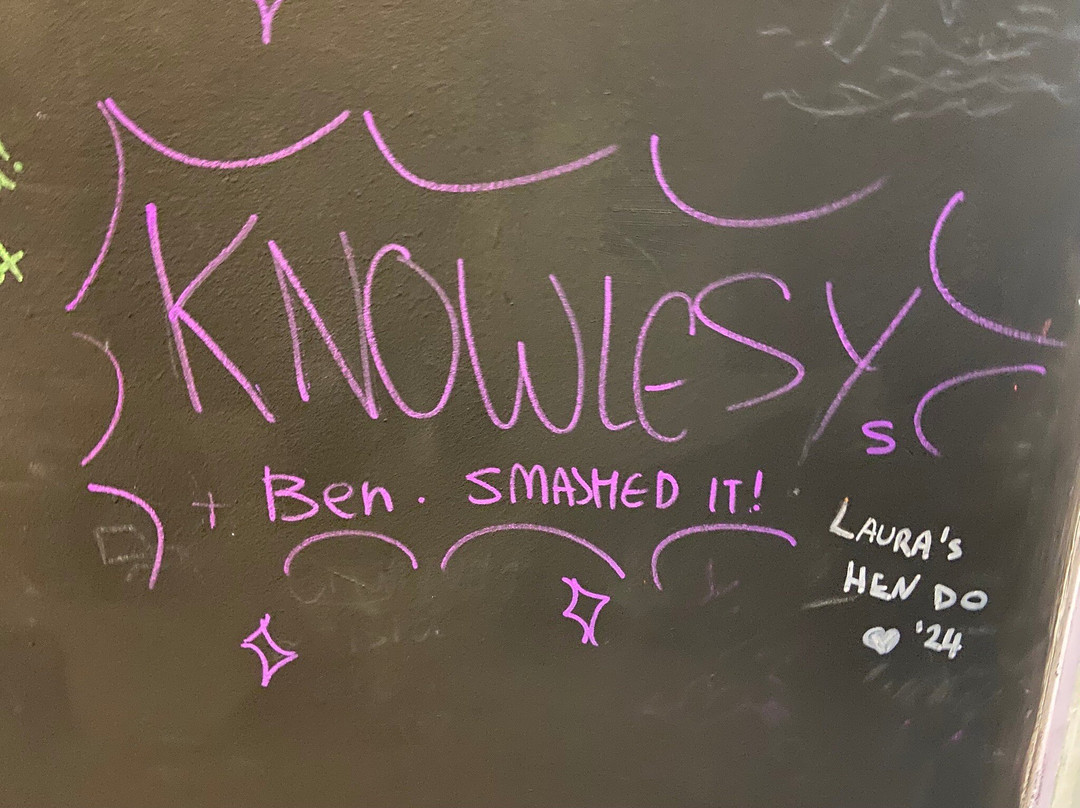 KNOWLESYS
+ Ben. SMASHED IT!
LAURA'S
HEN DO
♥ '24